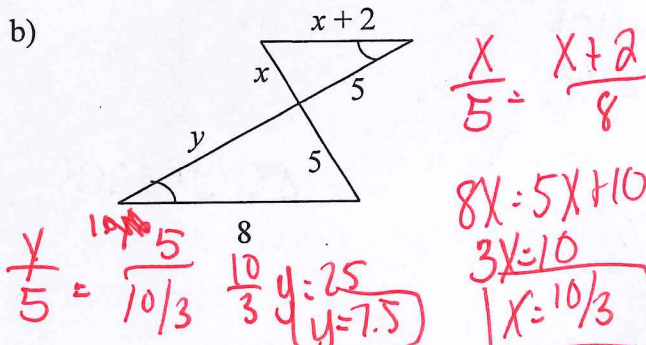 b)
x + 2
x
5
y
5
8
x/5 = x+2/8
8x = 5x+10
3x=10
x = 10/3
y/5 = 5/10/3
10/3 y = 25
y = 7.5